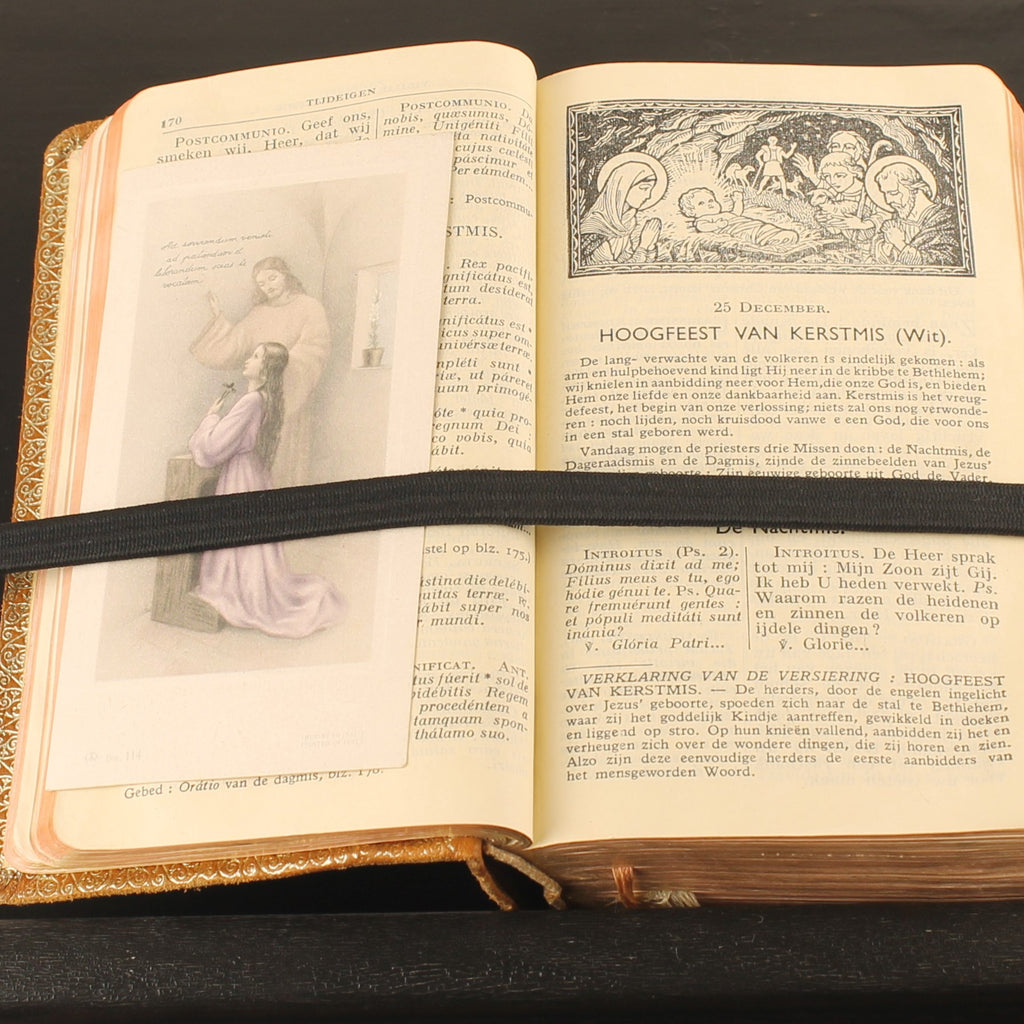 170
TIJDEIGEN
POSTCOMMUNIO. Geef ons,
smeken wij, Heer, dat wij
POSTCOMMUNIO. Da
nobis, quæsumus, Dó
mine. Unigéniti Fílii
nativitá
cujus cælésti
páscimur et
Per eúmdem...
: Postcommu-
STMIS.
. Rex pacífi
gnificátus est,
tum desíderat
terra.
nificátus est *
icus super om-
univérsæ terræ.
mpléti sunt *
iæ, ut páreret
uum primogé-
óte * quia pro-
regnum Dei :
co vobis, quia
ábit.
stel op blz. 175.)
ástina die delébi-
uitas terræ. ℟.
ábit super nos
mundi.
NIFICAT. ANT.
tus fúerit * sol de
vidébitis Regem
procedéntem a
tamquam spon-
thálamo suo.
Gebed : Orátio van de dagmis, blz. 178.
Ad serviendum veniste
ad patiendum et
laborandum scias te
vocatum.
114
25 DECEMBER.
HOOGFEEST VAN KERSTMIS (Wit).
De lang- verwachte van de volkeren is eindelijk gekomen : als
arm en hulpbehoevend kind ligt Hij neer in de kribbe te Bethlehem;
wij knielen in aanbidding neer voor Hem, die onze God is, en bieden
Hem onze liefde en onze dankbaarheid aan. Kerstmis is het vreug-
defeest, het begin van onze verlossing; niets zal ons nog verwonde-
ren : noch lijden, noch kruisdood vanwe e een God, die voor ons
in een stal geboren werd.
Vandaag mogen de priesters drie Missen doen : de Nachtmis, de
Dageraadsmis en de Dagmis, zijnde de zinnebeelden van Jezus'
geboorte : Zijn eeuwige geboorte uit God de Vader,
De Nachtmis.
INTROITUS (Ps. 2).
Dóminus dixit ad me;
Fílius meus es tu, ego
hódie génui te. Ps. Qua-
re fremuérunt gentes :
et pópuli meditáti sunt
inánia?
℣. Glória Patri...
INTROITUS. De Heer sprak
tot mij : Mijn Zoon zijt Gij.
Ik heb U heden verwekt. Ps.
Waarom razen de heidenen
en zinnen de volkeren op
ijdele dingen?
℣. Glorie...
VERKLARING VAN DE VERSIERING : HOOGFEEST
VAN KERSTMIS. — De herders, door de engelen ingelicht
over Jezus' geboorte, spoeden zich naar de stal te Bethlehem,
waar zij het goddelijk Kindje aantreffen, gewikkeld in doeken
en liggend op stro. Op hun knieën vallend, aanbidden zij het en
verheugen zich over de wondere dingen, die zij horen en zien.
Alzo zijn deze eenvoudige herders de eerste aanbidders van
het mensgeworden Woord.